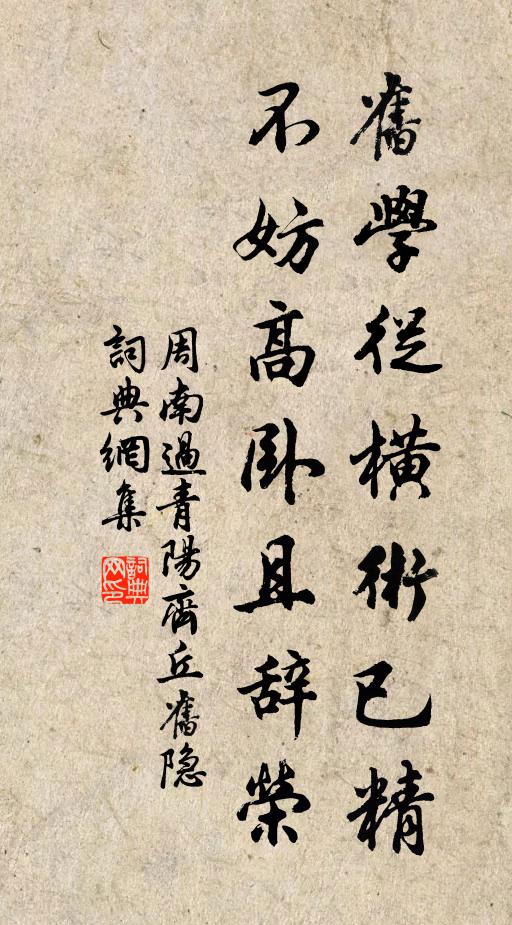 舊學從橫術已精
不妨高卧且辞榮
周南過青陽齊丘舊隐
詞典網集
詞典网印